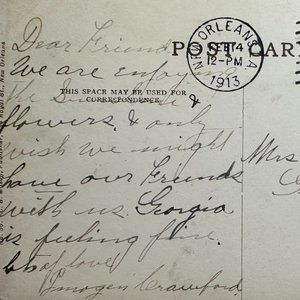 Dear Friend
We are enjoying
the
flowers & only
wish we might
have our Friends
with us. Georgia
is feeling fine.
lots of love
Imogen Crawford
POST CAR
THIS SPACE MAY BE USED FOR
CORRESPONDENCE
NEW ORLEANS, LA
12-PM
1913
Mrs
New Orleans